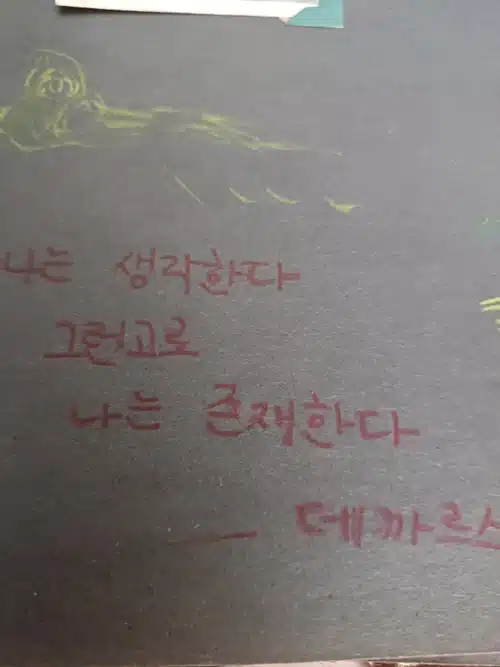 나는 생각한다
그런고로
나는 존재한다
— 데까르스